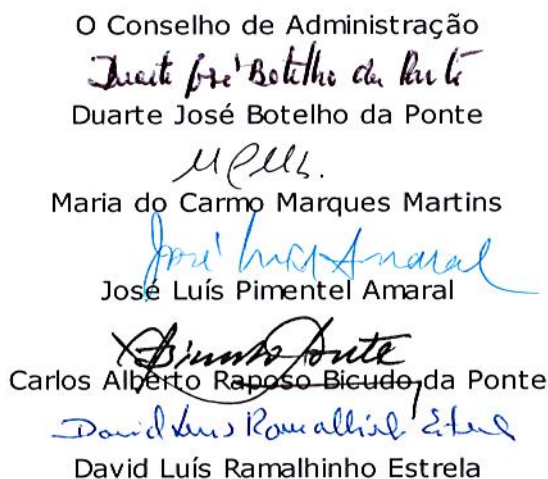 O Conselho de Administração
Duarte José Botelho da Ponte
Duarte José Botelho da Ponte
Maria do Carmo Marques Martins
José Luís Amaral
José Luís Pimentel Amaral
Bicudo Ponte
Carlos Alberto Raposo Bicudo da Ponte
David Luís Ramalhinho Estrela
David Luís Ramalhinho Estrela